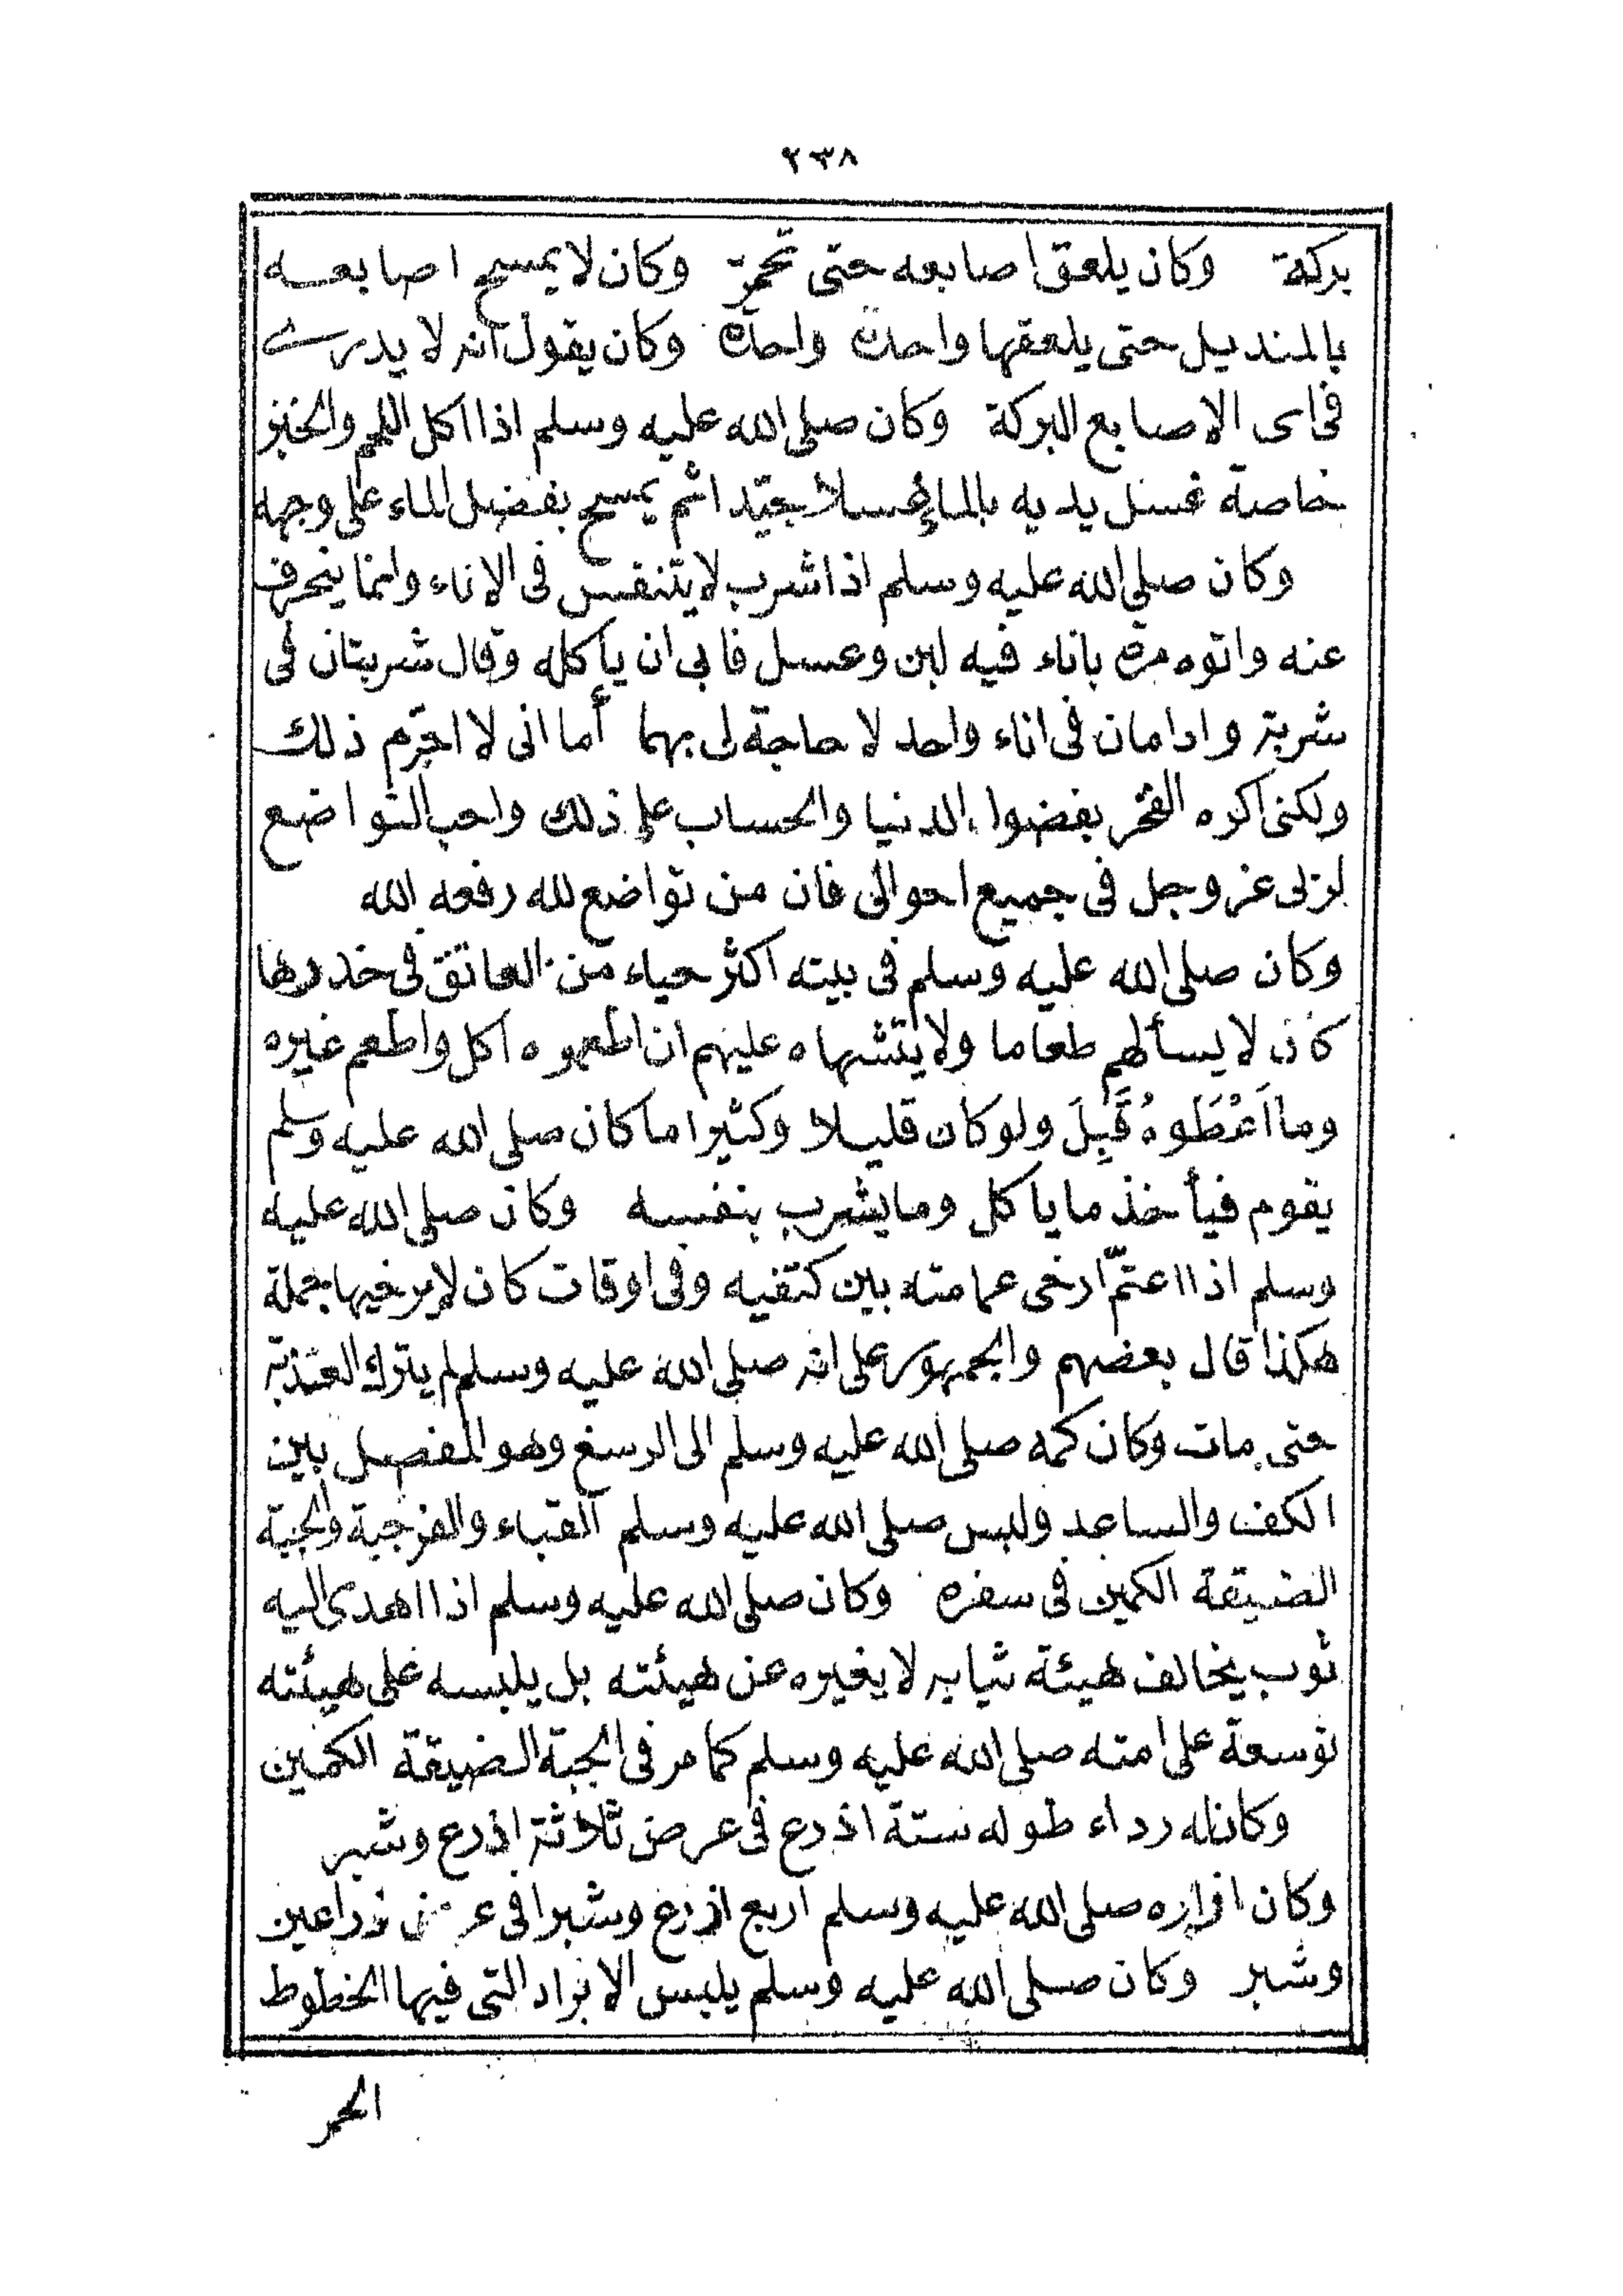 ٢٣٨
بركة وكان يلعق اصابعه حتى تحمرّ وكان لا يمسح اصابعه
بالمنديل حتى يلعقها واحدة واحدة وكان يقول انه لا يدرى
فى اى الاصابع البركة وكان صلى الله عليه وسلم اذا اكل اللحم والخبز
خاصة غسل يديه بالماء غسلا جيّدا ثم يمسح بفضل الماء على وجهه
وكان صلى الله عليه وسلم اذا شرب لا يتنفس فى الاناء وانما ينحرف
عنه واتوه مرة باناء فيه لبن وعسل فابى ان ياكله وقال شربتان فى
شربة وادامان فى اناء واحد لا حاجة لى بهما أما انى لا احرّم ذلك
ولكنى اكره الفخر بفضول الدنيا والحساب على ذلك واحب التواضع
لربى عز وجل فى جميع احوالى فان من تواضع لله رفعه الله
وكان صلى الله عليه وسلم فى بيته اكثر حياء من العاتق فى خدرها
كان لا يسألهم طعاما ولا يتشهاه عليهم ان اطعموه اكل واطعم غيره
وما اَعْطَوهُ قَبِلَ ولو كان قليلا وكثيرا ما كان صلى الله عليه وسلم
يقوم فيأخذ ما ياكل وما يشرب بنفسه وكان صلى الله عليه
وسلم اذا اعتمّ ارخى عمامته بين كتفيه وفى اوقات كان لا يرخيها جملة
هكذا قال بعضهم والجمهور على انه صلى الله عليه وسلم لم يترك العذبة
حتى مات وكان كمه صلى الله عليه وسلم الى الرسغ وهو المفصل بين
الكف والساعد ولبس صلى الله عليه وسلم القباء والفرجية والجبة
الضيقة الكمين فى سفره وكان صلى الله عليه وسلم اذا اهدى اليه
ثوب يخالف هيئة ثيابه لا يغيره عن هيئته بل يلبسه على هيئته
توسعة على امته صلى الله عليه وسلم كما مر فى الجبة الضيقة الكمين
وكان له رداء طوله ستة اذرع فى عرض ثلاثة اذرع وشبر
وكان ازاره صلى الله عليه وسلم اربع اذرع وشبرا فى عرض ذراعين
وشبر وكان صلى الله عليه وسلم يلبس الابراد التى فيها الخطوط
الحمر